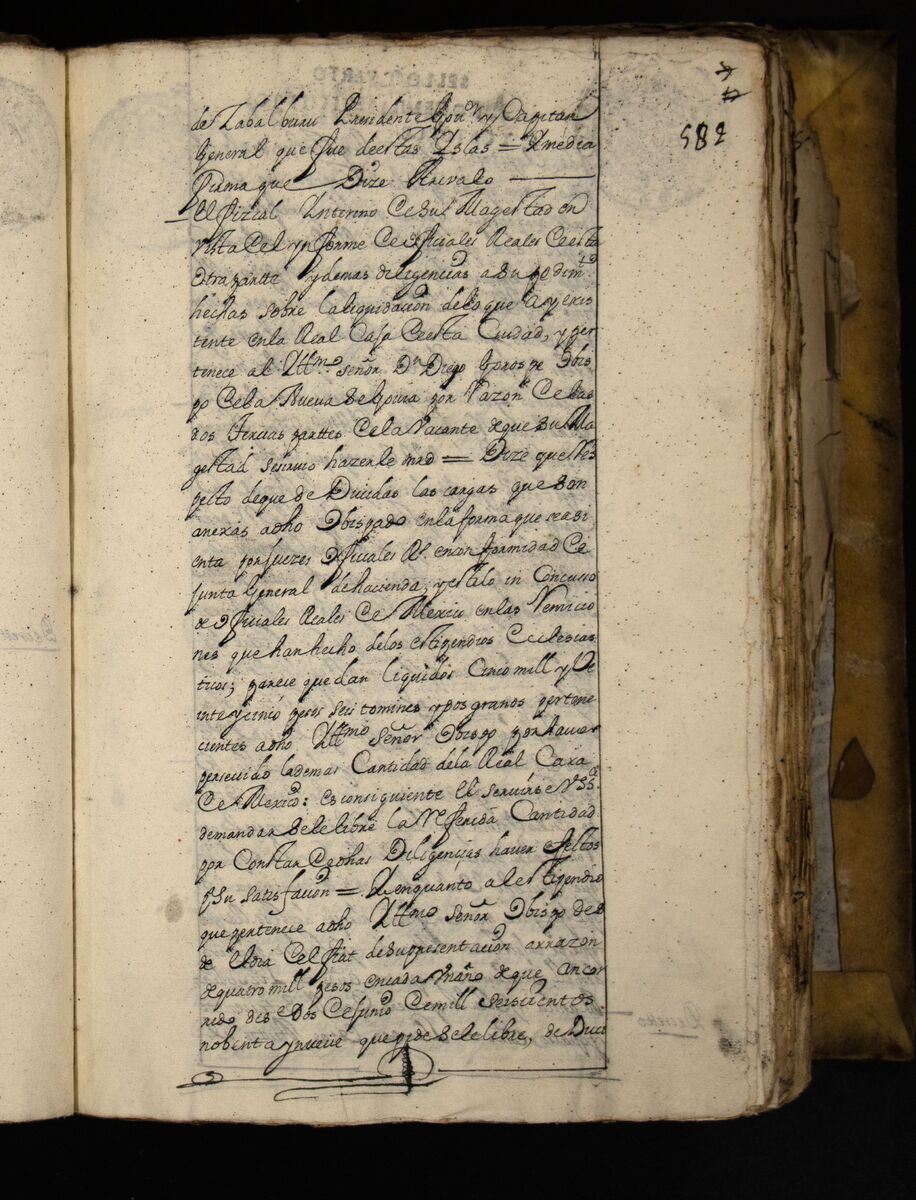 582
de Zabalburu Presidente Gouor y Capitan
General que fue de estas Yslas = Y media
firma que Dize Arevalo
el fizcal Ynterino de su Magestad en
vista del ynforme de oficiales Reales de esta
otra partte y demas diligencias a su pedimto
hechas sobre la liquidacion de lo que ay exis
tente en la Real Caja de esta Ciudad, y per
tenece al Yllmo señor Dn Diego Obis
po de la Nueua Segouia por razon de las
dos tercias parttes de la Vacante de que su Ma
gestad se siruio hazerle mrd = Dize que Res
pecto de que deDucidas las cargas que son
anexas a dho Obispado en la forma que se asi
enta por Juezes oficiales Rs en conformidad de
junta General de hacienda, y estilo in Concuso
de oficiales Reales de Mexico en las Remicio
nes que han hecho de los estipendios Eclesias
ticos; parece quedan liquidos Cinco mill y Ve
inte y cinco pesos seis tomines y dos granos pertene
cientes a dho Yllmo señor Obispo por hauer
perseuido la demas Cantidad de la Real Caxa
de Mexico: es consiguiente el seruirse VSSa
demandar se le libre la Referida Cantidad
por Constar de dhas Diligencias hauer efectos
pa su satisfacion = Y en quanto al estipendio
que pertenece a dho Yllmo señor Obispo des
de el dia del fiat de su presentacion a razon
de quatro mill pesos en cada Vn año de que an cor
rido des dos de Junio de mill seiscientos
nobenta y nueue que pide se le libre, deDuci